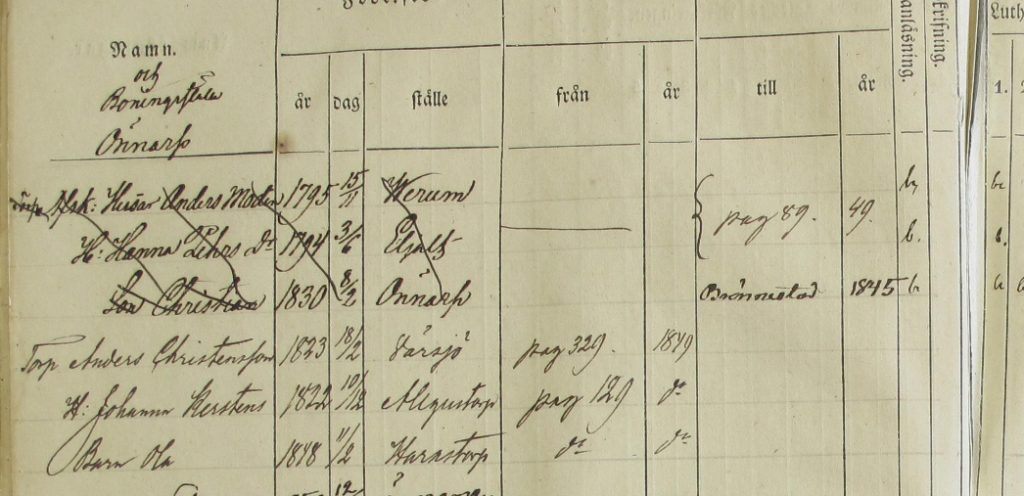 Namn.
och
Boningsställe
Önnarp
år dag ställe från år till år
anläsning.
Luth
1.
Afsk: Husar Anders Mårten 1795 15/11 Werum
pag 89. 49.
H: Hanna Pehrs Dr 1794 3/6 Eljalt
Son Christian 1830 8/2 Önnarp Brönnestad 1845 b
Torp Anders Christensson 1823 18/2 Färsjö pag 329. 1849
H: Johanna Kerstens 1822 10/12 Allgustorp pag 129 do
Barn Ola 1848 11/2 Harastorp do do